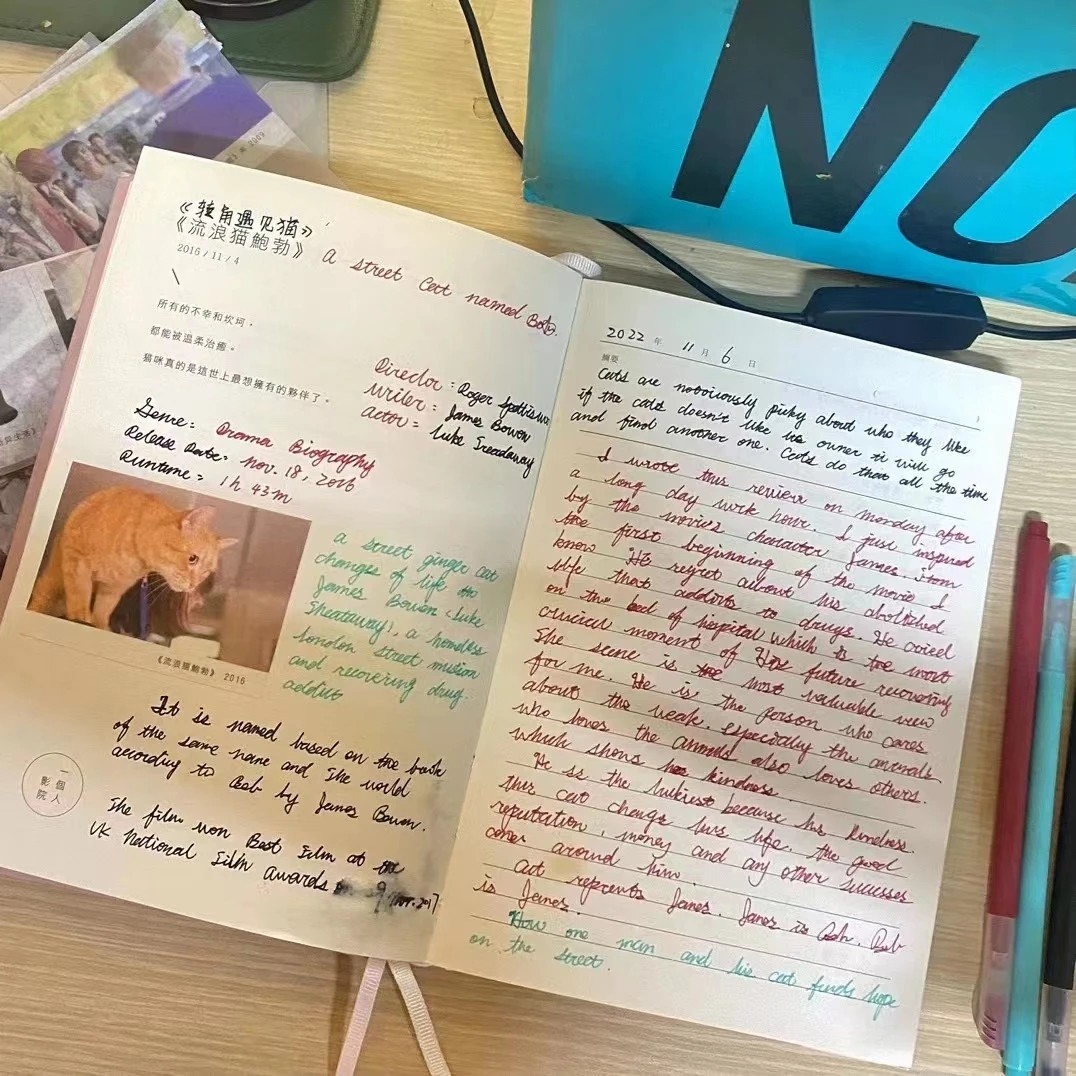 NO
2009
《转角遇见猫》
《流浪猫鮑勃》
2016/11/4
A street Cat named Bob.
所有的不幸和坎坷，
都能被温柔治癒。
猫咪真的是這世上最想擁有的夥伴了。
Director: Roger Spottiswo
writer: James Bowen
actor: Luke Treadaway
Genre: Dromma Biography
Release Date: Nov. 18, 2016
Runtime: 1h 43m
a street ginger cat
changes of life to
James Bowen (Luke
Theataway), a homeless
london street
and recovering drug
addict
《流浪猫鮑勃》 2016
It is named based on the book
of the same name and The world
according to Bob by James Bowen.
一個人
影院
The film won Best Film at the
UK National Film awards
2017
2022 年 11 月 6 日
摘要
Cats are notoriously picky about who they like
if the cats doesn't like its owner it will go
and find another one. Cats do that all the time
I wrote this review on monday after
a long day work hour. I just inspired
by the movie's character James. from
the first beginning of the movie I
know He regret about his
life that addicts to drugs. He cried
on the bed of hospital which is the most
crucical moment of His future recovering
The scene is the most valuable view
for me. He is the person who cares
about the weak especially the animals
who loves the animals also loves others.
which shows his kindness.
He is the lukiest because his kindness.
this cat change his life. the good
reputation, money and any other successes
around him.
Cat reprents James. James is Bob. Bob
is James.
How one man and his cat finds hope
on the street.